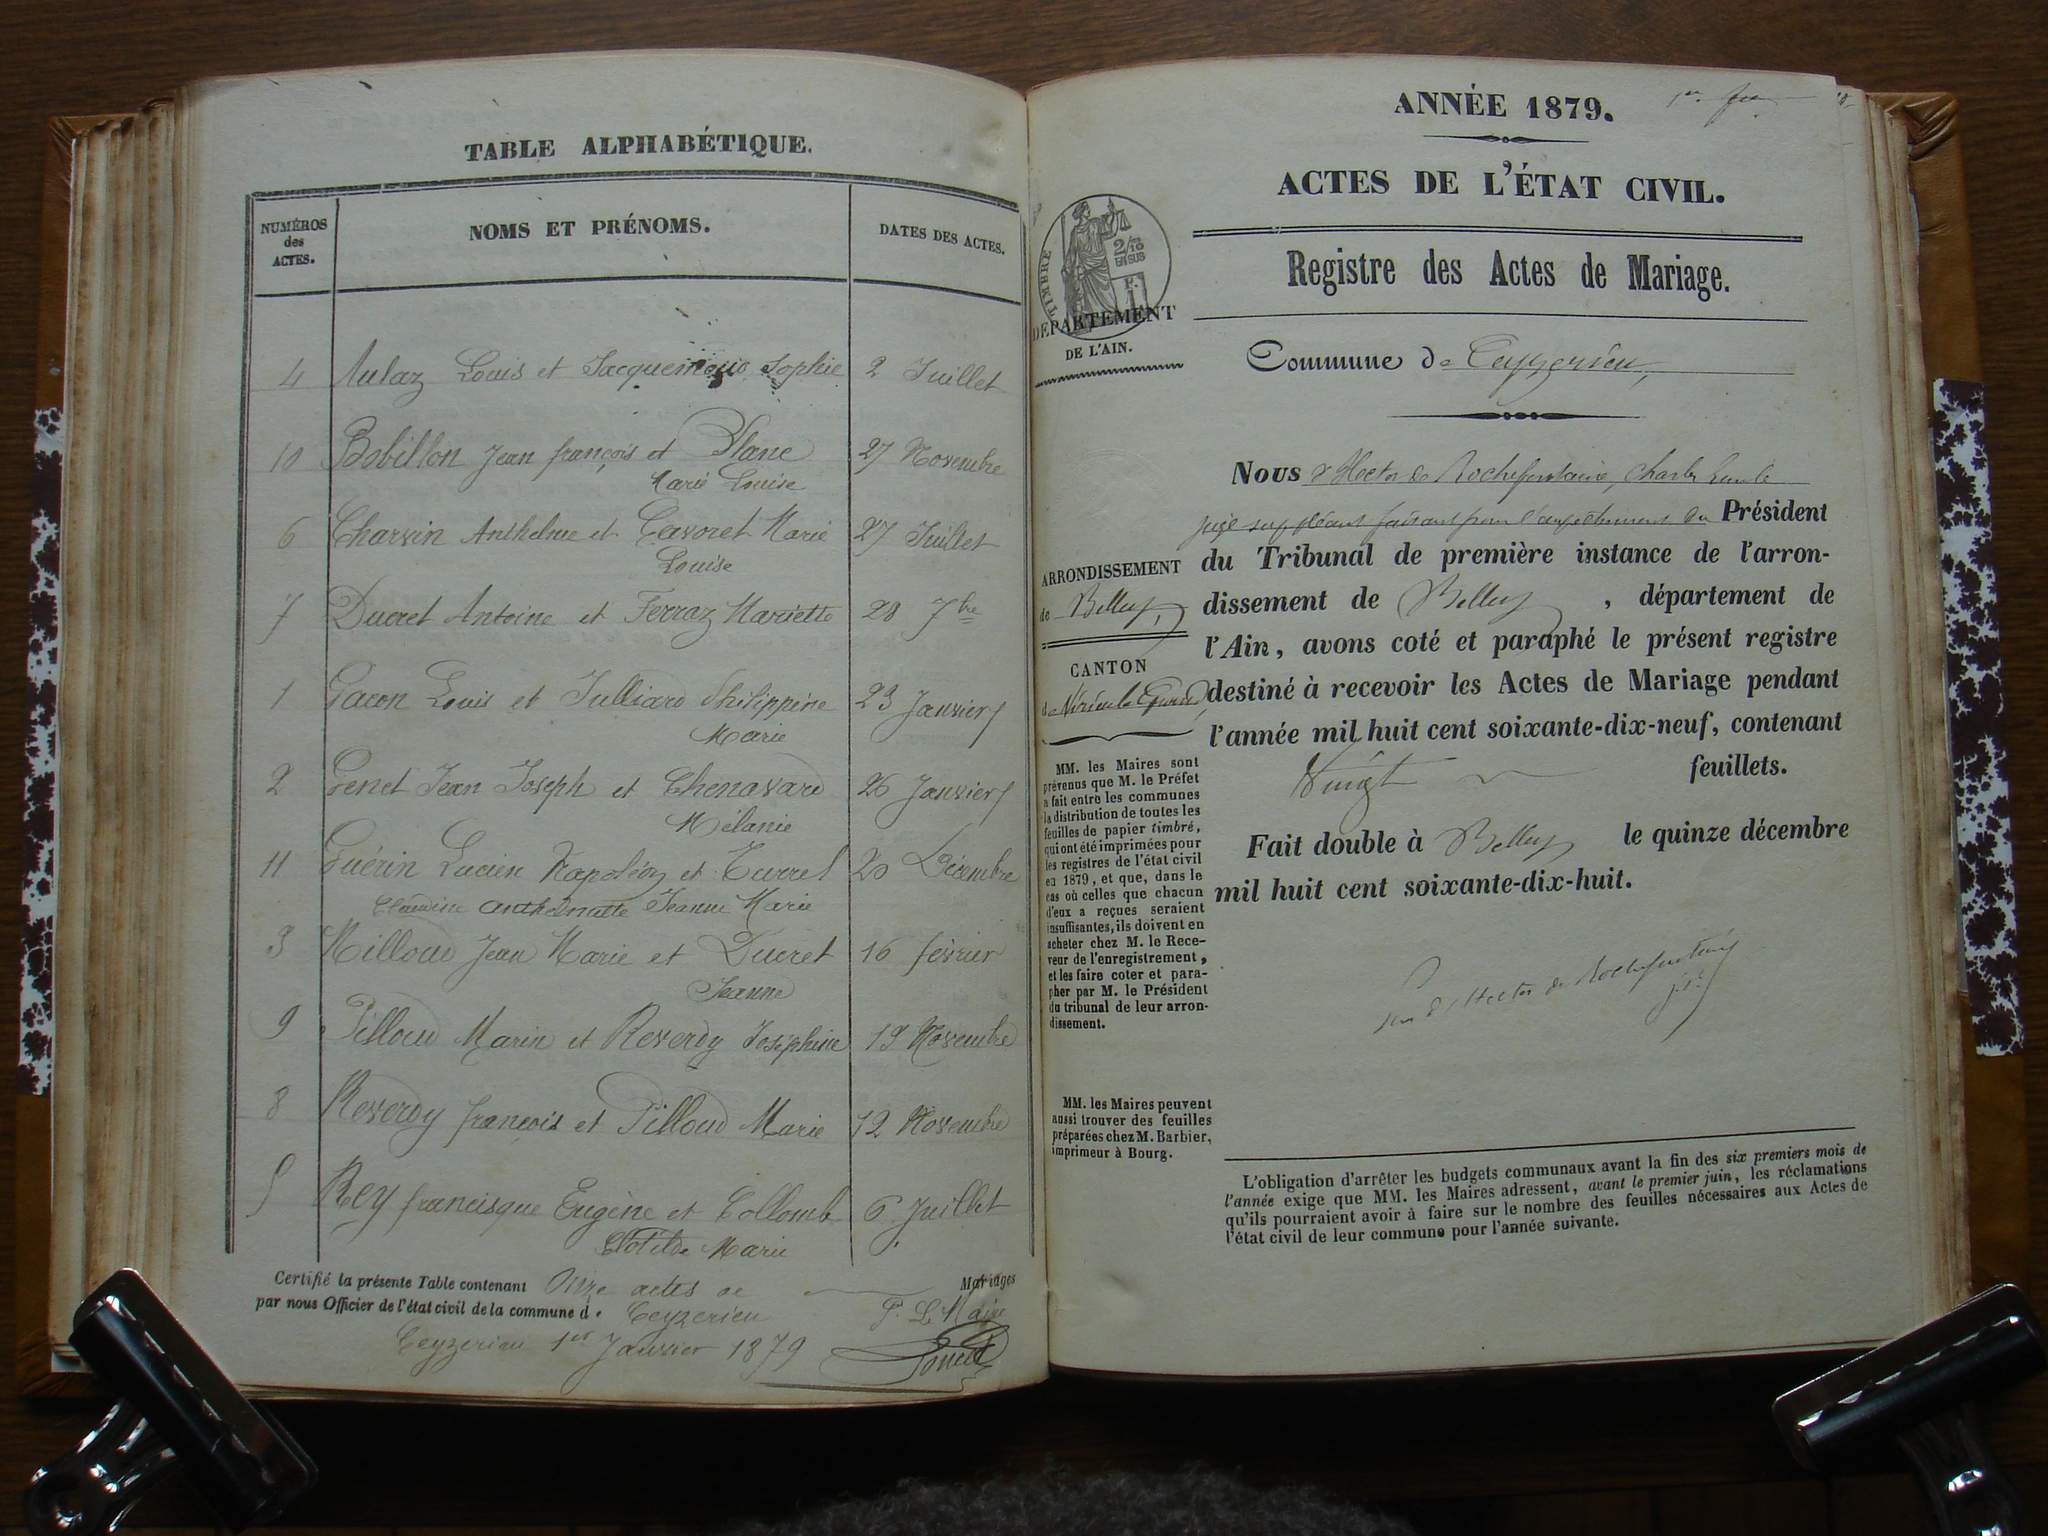 TABLE ALPHABÉTIQUE.
NUMÉROS des ACTES.
NOMS ET PRÉNOMS.
DATES DES ACTES.
4 Aulaz Louis et Jacquemoud Sophie 2 Juillet
10 Bobillon Jean françois et Blanc 27 Novembre
Marie Louise
6 Charvin Anthelme et Cavoret Marie 27 Juillet
Louise
7 Ducret Antoine et Ferraz Mariette 28 7bre
1 Gacon Louis et Julliard Philippine 23 Janvier
Marie
2 Genet Jean Joseph et Chenavard 26 Janvier
Mélanie
11 Guérin Lucien Napoléon et Curret 20 Décembre
Claudine Anthelmette Jeanne Marie
3 Milloud Jean Marie et Ducret 16 février
Jeanne
9 Pilloud Marin et Reverdy Joséphine 19 Novembre
8 Reverdy françois et Pilloud Marie 12 Novembre
5 Rey francisque Eugène et Collomb 6 Juillet
Clotilde Marie
Certifié la présente Table contenant Onze actes de Mariages
par nous Officier de l'état civil de la commune de Ceyzerieu
P. Le Maire
Ceyzerieu 1er Janvier 1879
ANNÉE 1879.
ACTES DE L'ÉTAT CIVIL.
Registre des Actes de Mariage.
TIMBRE
2/10
EN SUS
DÉPARTEMENT
DE L'AIN.
Commune de Ceyzerieu,
Nous d'Hector de Rochefontaine, Charles
juge suppléant faisant pour l'empêchement du Président
du Tribunal de première instance de l'arron-
dissement de Belley, département de
l'Ain, avons coté et paraphé le présent registre
destiné à recevoir les Actes de Mariage pendant
l'année mil huit cent soixante-dix-neuf, contenant
Vingt feuillets.
Fait double à Belley le quinze décembre
mil huit cent soixante-dix-huit.
d'Hector de Rochefontaine
ARRONDISSEMENT
de Belley,
CANTON
de Virieu le Grand,
MM. les Maires sont
prévenus que M. le Préfet
a fait entre les communes
la distribution de toutes les
feuilles de papier timbré,
qui ont été imprimées pour
les registres de l'état civil
en 1879, et que, dans le
cas où celles que chacun
d'eux a reçues seraient
insuffisantes, ils doivent en
acheter chez M. le Rece-
veur de l'enregistrement,
et les faire coter et para-
pher par M. le Président
du tribunal de leur arron-
dissement.
MM. les Maires peuvent
aussi trouver des feuilles
préparées chez M. Barbier,
imprimeur à Bourg.
L'obligation d'arrêter les budgets communaux avant la fin des six premiers mois de
l'année exige que MM. les Maires adressent, avant le premier juin, les réclamations
qu'ils pourraient avoir à faire sur le nombre des feuilles nécessaires aux Actes de
l'état civil de leur commune pour l'année suivante.